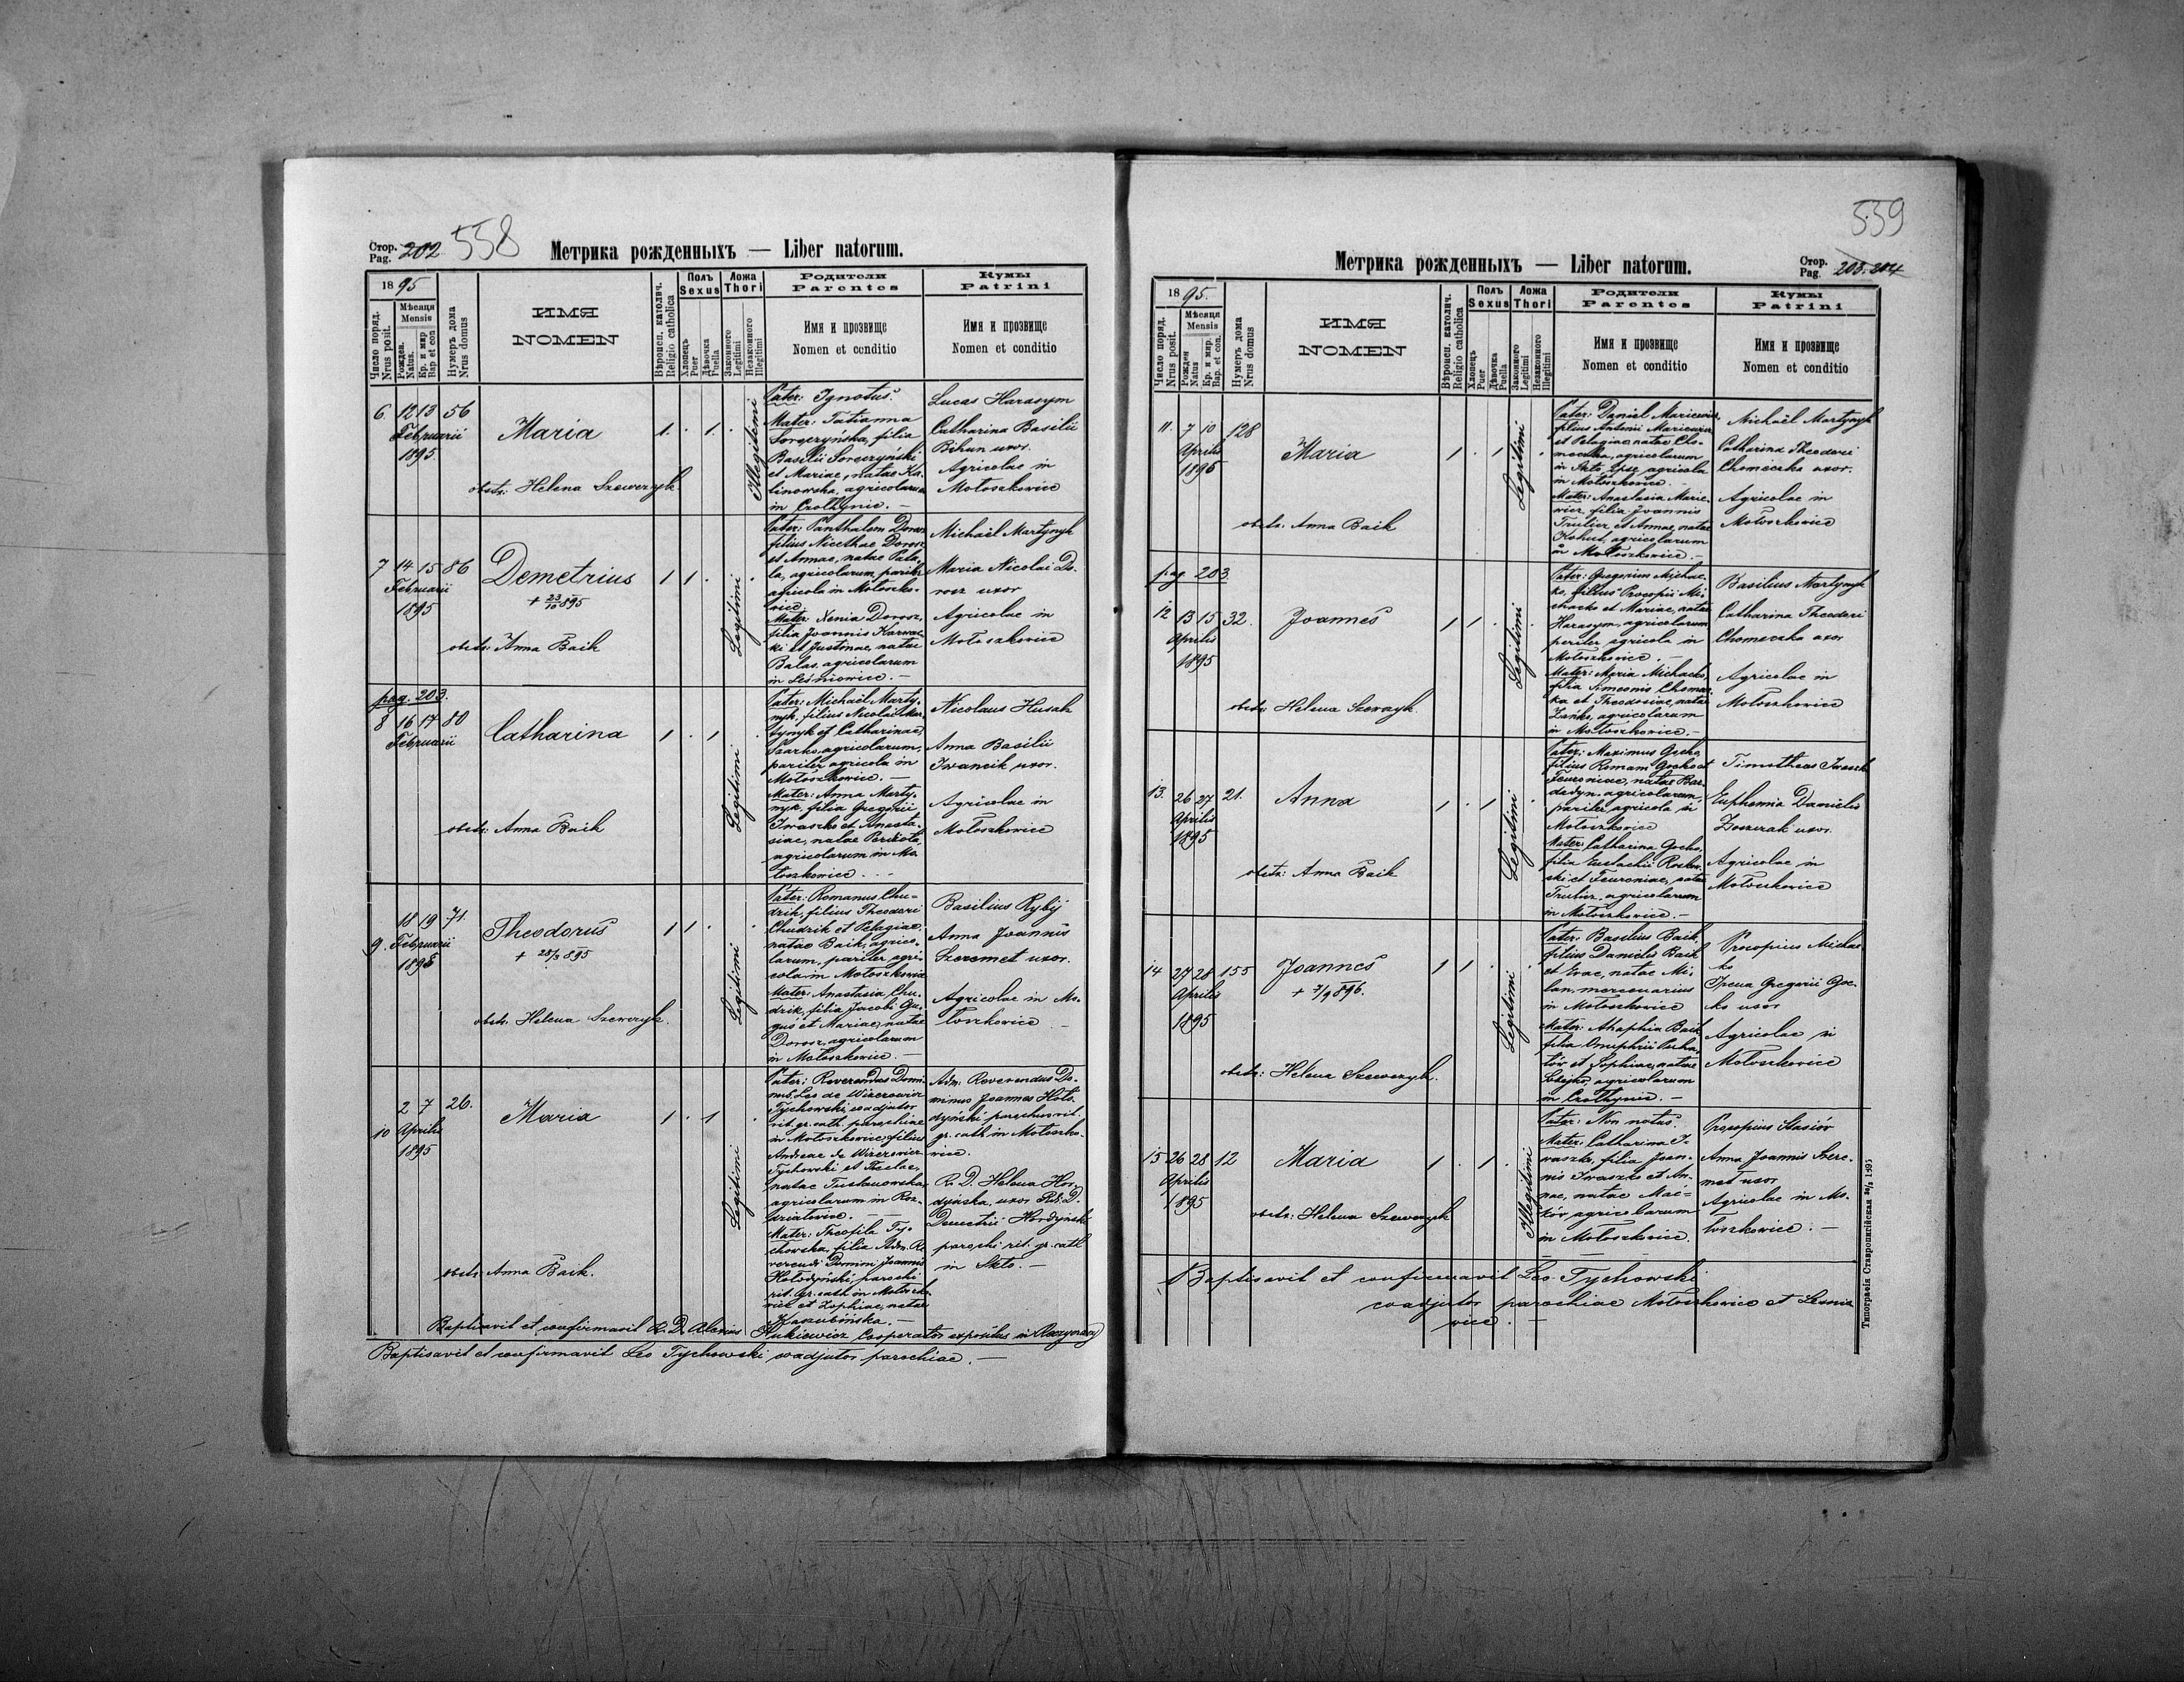 Стор.
Pag. 202 558
Метрика рожденныхъ — Liber natorum.
1895
Число поряд.
Nrus posit.
Мѣсяця
Mensis
Рожден.
Natus.
Кр. и мир
Bap. et con
Нумеръ дома
Nrus domus
ИМЯ
NOMEN
Вѣроисп. католич.
Religio catholica
Полъ
Sexus
Хлопецъ
Puer
Дѣвочка
Puella
Ложа
Thori
Законного
Legitimi
Незаконного
Illegitimi
Родители
Parentes
Имя и прозвище
Nomen et conditio
Кумы
Patrini
Имя и прозвище
Nomen et conditio
6. 12 13 56
Februarii
1895.
Maria
1. . 1. .
Illegitimi
obstr: Helena Szewczyk.
Pater: Ignotus.
Mater: Tatianna
filia
Basilii
et Mariae, natae Ka-
linowska, agricolarum
in Crotkynie. —
Lucas Harasym
Catharina Basilii
Bihun uxor.
Agricolae in
Mołoszkowice
7 14 15 86
Februarii
1895
Demetrius
+ 23/10 895
1 1 . .
Legitimi
obstr: Anna Baik
Pater: Panthalem Dorosz
filius Nicethae Dorosz
et Annae, natae Pala-
la, agricolarum, pariter
agricola in Mołoszko-
wice
Mater: Xenia Dorosz,
filia Joannis Karwac-
ki et Justinae, natae
Balas, agricolarum
in Leśniowice. —
Michaël Martynyk
Maria Nicolai Do-
rosz uxor
Agricolae in
Mołoszkowice
pag. 203.
8 16 17 80
Februarii
Catharina
1 . 1 .
Legitimi
obstr: Anna Baik
Pater: Michaël Marty-
nyk, filius Nicolai Mar-
tynyk et Catharinae,
Szarko, agricolarum,
pariter agricola in
Mołoszkowice. —
Mater: Anna Marty-
nyk, filia Gregorii
Iwaszko et Anasta-
siae, natae
agricolarum in Mo-
łoszkowice . . .
Nicolaus Husak
Anna Basilii
Iwancik uxor.
Agricolae in
Mołoszkowice
9. 18 19 71.
Februarii
1895
Theodorus
+ 28/3 895
1 1 . .
Legitimi
obstr. Helena Szewczyk.
Pater: Romanus Chu-
dzik, filius Theodori
Chudzik et Pelagiae,
natae Baik, agrico-
larum, pariter agri-
cola in Mołoszkowice
Mater: Anastasia Chu-
dzik, filia Jacobi Gu-
gus et Mariae, natae
Dorosz, agricolarum
in Mołoszkowice. —
Basilius Rybij
Anna Joannis
Szeremet uxor.
Agricolae in Mo-
łoszkowice —
10 2 7 26.
Aprilis
1895
Maria
1 . 1 .
Legitimi
obstr: Anna Baik.
Pater: Reverendus Domi-
nus Leo de Wizerowicz
Tychowski, coadjutor
rit. gr. cath. parochiae
in Mołoszkowice, filius
Andreae de Wizerowicz
Tychowski et Theclae,
natae Tustanowska,
agricolarum in Roz-
—
Mater: Theofila Ty-
chowska, filia Adm. Re-
verendi Domini Joannis
Hołodyński, parochi
rit. gr. cath. in Mołoszko-
wice et Sophiae, natae
—
Adm. Reverendus Do-
minus Joannes Hoło-
dyński parochus rit.
gr. cath. in Mołoszko-
wice.
R. D. Helena Hor-
dyńska, uxor R. D.
Demetrii Hordyński
parochi rit. gr. cath
in Skło. —
Baptisavit et confirmavit R. D. Alexius Cooperator expositus in
Baptisavit et confirmavit Leo Tychowski coadjutor parochiae. —
559
Метрика рожденныхъ — Liber natorum.
Стор.
Pag. 203. 204
1895.
Число поряд.
Nrus posit.
Мѣсяця
Mensis
Рожден
Natus
Кр. и мир.
Bap. et con.
Нумеръ дома
Nrus domus
ИМЯ
NOMEN
Вѣроисп. католич.
Religio catholica
Полъ
Sexus
Хлопецъ
Puer
Дѣвочка
Puella
Ложа
Thori
Законного
Legitimi
Незаконного
Illegitimi
Родители
Parentes
Имя и прозвище
Nomen et conditio
Кумы
Patrini
Имя и прозвище
Nomen et conditio
11. 7 10 128
Aprilis
1895
Maria
1 . 1 .
Legitimi
obstr: Anna Baik
Pater: Daniel Maricewicz,
filius Antonii Maricewicz
et Pelagiae, natae Cho-
meczka, agricolarum
in Skło. Ipse agricola
in Mołoszkowice.
Mater: Anastasia Marice-
wicz, filia Joannis
Trulicz et Annae, natae
Kohut, agricolarum
in Mołoszkowice. —
Michaël Martynyk
Catharina Theodori
Chomeczka uxor.
Agricolae in
Mołoszkowice
pag. 203.
12 13 15 32.
Aprilis
1895
Joannes
1 1 . .
Legitimi
obstr: Helena Szewczyk.
Pater: Gregorius Michac-
ko, filius Procopii Mi-
chacko et Mariae, natae
Harasym, agricolarum
pariter agricola in
Mołoszkowice. —
Mater: Maria Michacko,
filia Simeonis Chomecz-
ka et Theodosiae, natae
agricolarum
in Mołoszkowice. —
Basilius Martynyk
Catharina Theodori
Chomeczka uxor
Agricolae in
Mołoszkowice
13. 26 27 21.
Aprilis
1895
Anna
1 . 1 .
Legitimi
obstr: Anna Baik
Pater: Maximus Gocko,
filius Romani Gocko et
Feuroniae, natae Bar-
dadyn, agricolarum,
pariter agricola in
Mołoszkowice
Mater: Catharina Gocko,
filia Eustachii Roskow-
ski et Feuroniae, natae
Trulicz, agricolarum
in Mołoszkowice. —
Timotheus Iwaszko
Euphemia Danielis
uxor.
Agricolae in
Mołoszkowice
14 27 28 155
Aprilis
1895
Joannes
+ 7/9 896.
1 1 . .
Legitimi
obstr: Helena Szewczyk.
Pater: Basilius Baik,
filius Danielis Baik
et Evae, natae Mi-
lan, mercenarius
in Mołoszkowice
Mater: Ahaphia Baik,
filia Onuphrii Pucha-
tór et Sophiae, natae
agricolarum
in Crotkynie. —
Procopius Michac-
ko
Irena Gregorii Goc-
ko uxor
Agricolae in
Mołoszkowice
15 26 28 12
Aprilis
1895
Maria
1 . 1 .
Illegitimi
obstr: Helena Szewczyk
Pater: Non notus.
Mater: Catharina I-
waszko, filia Joan-
nis Iwaszko et An-
nae, natae
agricolarum
in Mołoszkowice.
Procopius Stasiów
Anna Joannis Szere-
met uxor
Agricolae in Mo-
łoszkowice. —
Baptisavit et confirmavit Leo Tychowski
coadjutor parochiae Mołoszkowice et Lesnio-
wice. —